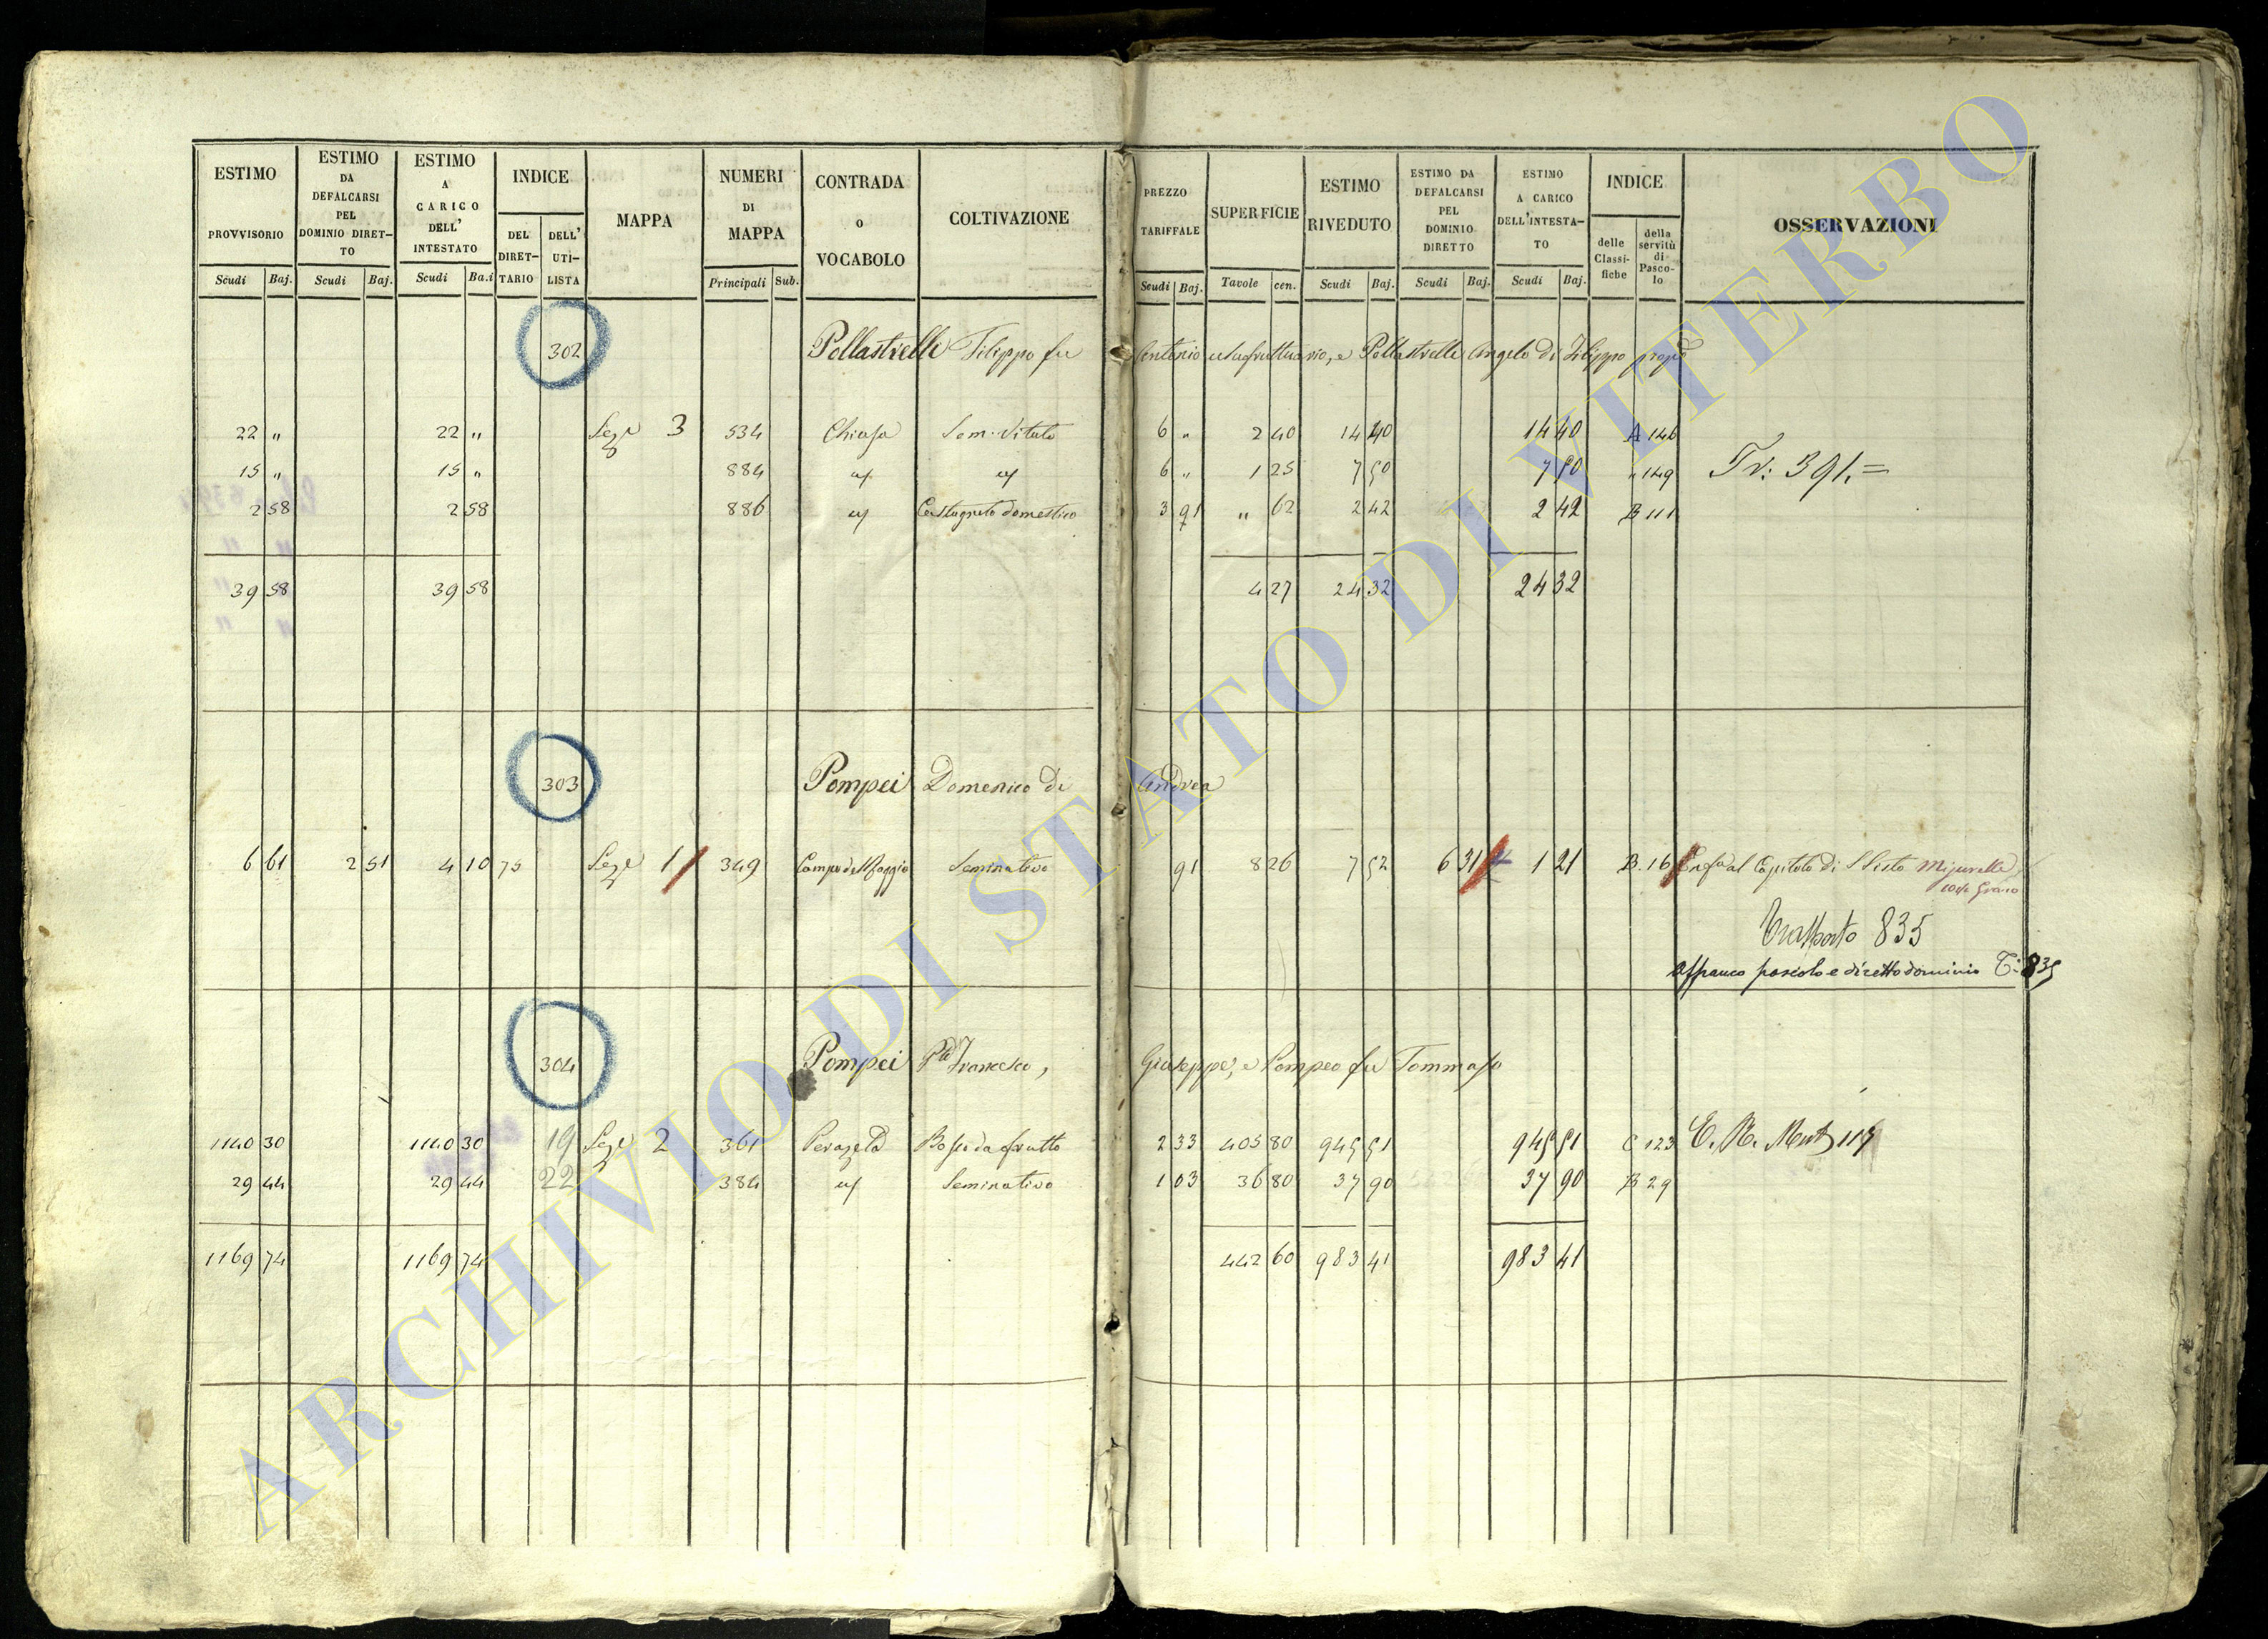 ESTIMO PROVVISORIO Scudi Baj.
ESTIMO DA DEFALCARSI PEL DOMINIO DIRET-TO Scudi Baj.
ESTIMO A CARICO DELL' INTESTATO Scudi Ba.i
INDICE DEL DIRET-TARIO DELL' UTI-LISTA
MAPPA
NUMERI DI MAPPA Principali Sub.
CONTRADA o VOCABOLO
COLTIVAZIONE
PREZZO TARIFFALE Scudi Baj.
SUPERFICIE Tavole cen.
ESTIMO RIVEDUTO Scudi Baj.
ESTIMO DA DEFALCARSI PEL DOMINIO DIRETTO Scudi Baj.
ESTIMO A CARICO DELL'INTESTA-TO Scudi Baj.
INDICE delle Classi-fiche della servitù di Pasco-lo
OSSERVAZIONI
302 Pollastrelli Filippo fu Antonio usufruttuario, e Pollastrelli Angelo di Filippo prop.o
22 " 22 " Seze 3 534 Chiusa Sem. Vitato 6 " 2 40 14 40 14 40 A 146
15 " 15 " 884 " 6 " 1 25 7 50 7 50 " 149 Tr: 391.=
2 58 2 58 886 Castagneto domestico 3 91 " 62 2 42 2 42 B 111
39 58 39 58 4 27 24 32 24 32
303 Pompei Domenico di Andrea
6 61 2 51 4 10 75 Seze 1 349 Campo del Faggio Seminativo 91 8 26 7 52 6 31 1 21 B. 16 Enfa al Capitolo di S Sisto
Trasporto 835
affranco pascolo e diretto dominio T: 835
304 Pompei Francesco, Giuseppe, e Pompeo fu Tommaso
1140 30 1140 30 19 Seze 2 361 Bosco da frutto 2 33 405 80 945 51 945 51 C 123
29 44 29 44 22 384 Seminativo 1 03 36 80 37 90 37 90 B 29
1169 74 1169 74 442 60 983 41 983 41
ARCHIVIO DI STATO DI VITERBO